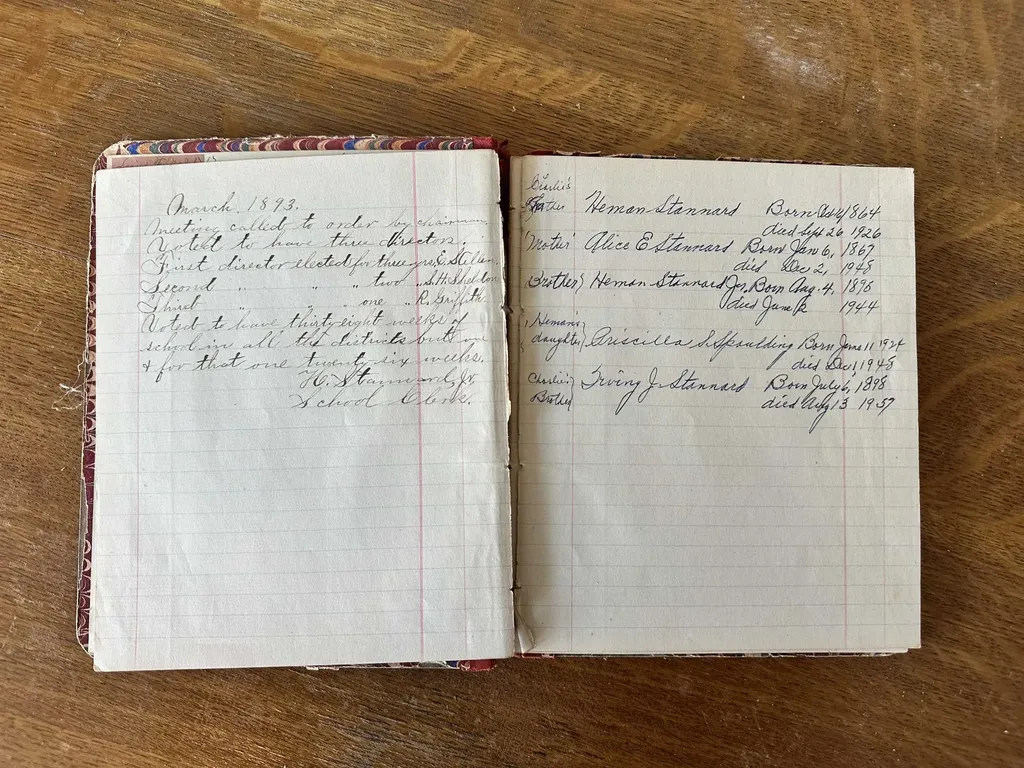 March, 1893.
Meeting called to order by chairman
Voted to have three directors.
First director elected for three yrs,
Second " " " two " S.H. Sheldon
Third " " one " R. Griffith.
Voted to have thirty eight weeks of
school in all the districts but one
& for that one twenty-six weeks.
H. Stannard, Jr.
School Clerk.
Charlie's
Father Heman Stannard Born 1864
died Sept 26 1926
"Mother" Alice E Stannard Born Jan 6, 1867
died Dec 2, 1948
Brother) Heman Stannard Jr, Born Aug. 4, 1896
died June 1944
Heman's
daughter) Priscilla S. Spaulding Born June 11 1924
died Dec 1 1948
Charlie's
Brother Irving J. Stannard Born July 6, 1898
died Aug 13 1957